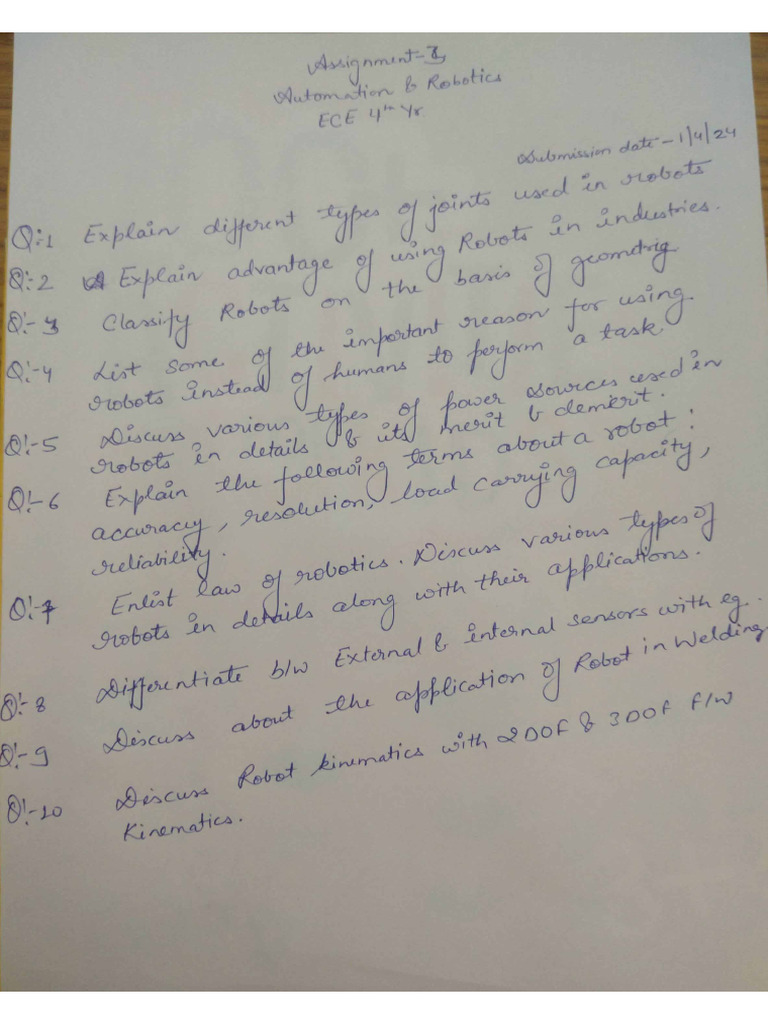 Assignment-I
Automation & Robotics
ECE 4th Yr
Submission date - 1/4/24
Q:1 Explain different types of joints used in robots
Q:-2 Explain advantage of using Robots in industries.
Q:-3 Classify Robots on the basis of geometry
Q:-4 List some of the important reason for using
robots instead of humans to perform a task.
Q:-5 Discuss various types of power sources used in
robots in details & its merit & demerit.
Q:-6 Explain the following terms about a robot:
accuracy, resolution, load carrying capacity,
reliability.
Q:-7 Enlist law of robotics. Discuss various types of
robots in details along with their applications.
Q:-8 Differentiate b/w External & internal sensors with eg.
Q:-9 Discuss about the application of Robot in Welding.
Q:-10 Discuss Robot kinematics with 2DOF & 3DOF F/W
Kinematics.